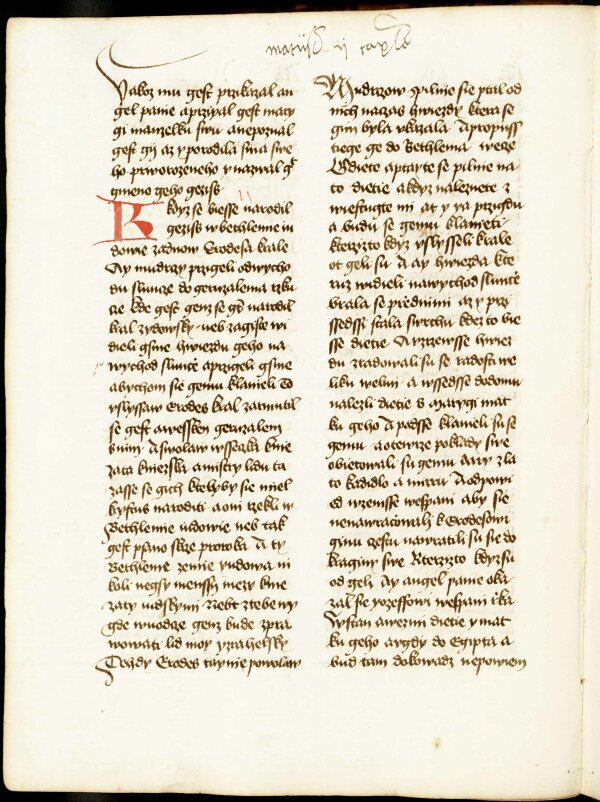 matuss ij capla
Yakoz mu gest przikazal an
gel panie a prziyal gest maty
gi manzelku swu a nepoznal
gest gij az y porodila sina swe
ho prworozeneho y nazwal gt
gmeno geho gezis
Kdyz se biesse narodil
gezis w bethlemie iu
dowie za dnow Erodesa krale
Ay mudrzy przigeli od wycho
du slunce do geruzalema rzku
ce kde gest genz se gt narodil
kral zydowsky neb zagiste wi
dieli gsme hwiezdu geho na
wychod slunce a przigeli gsme
abychom sie gemu klanieli To
vslyssaw Erodes kral zarmutil
se gest a wessken geruzalem
s nim A swolaw wssezka knie
zata kniezska a mistry lidu ta
zasse se gich kteby by sie miel
kystus naroditi a oni rzekli w
Bethlemie iudowie neb tak
gest psano skrze proroka A ty
Bethleme zemie yudowa ni
koli negsy menssy mezy knie
zaty iudskymi Nebt z tebe wy
gde wuodce genz bude zpra
wowati lid moy yzrahelsky
Tehdy Erodes taynie powolaw
Mudrzow pilnie sie ptal od
nich na czas hwiezdy ktera se
gim byla vkazala A propuss
tiege ge do Bethlema wece
Gdiete a ptayte se pilnie na
to dietie a kdyz naleznete z
wiestugte mi at y ia przigdu
a budu se gemu klanieti
kterzizto kdyz vslysseli krale
otgeli su A ay hwiezda kte
ruz widieli na wychod slunce
brala se przed nimi az y przi
ssedssi stala swrchu kdezto bie
sse dietie A vzrzewsse hwiez
du zradowali su se radosti we
liku welmi a wssedsse do domu
nalezli dietie s marygi mat
ku geho A padsse klanieli su se
gemu a otewrze poklady swe
obietowali su gemu dary zla
to kadidlo a mirru A odpowi
ed wzemsse we spani aby sie
nenawraczowali k Erodesowi
ginu cestu nawratili su sie do
kraginy swe Kterzizto kdyz su
odgeli Ay angel panie vka
zal sie yozeffowi we spani rzka
Wstan a wezmi dietie y mat
ku geho a vgdy do Egipta a
bud tam dokowadz nepowiem